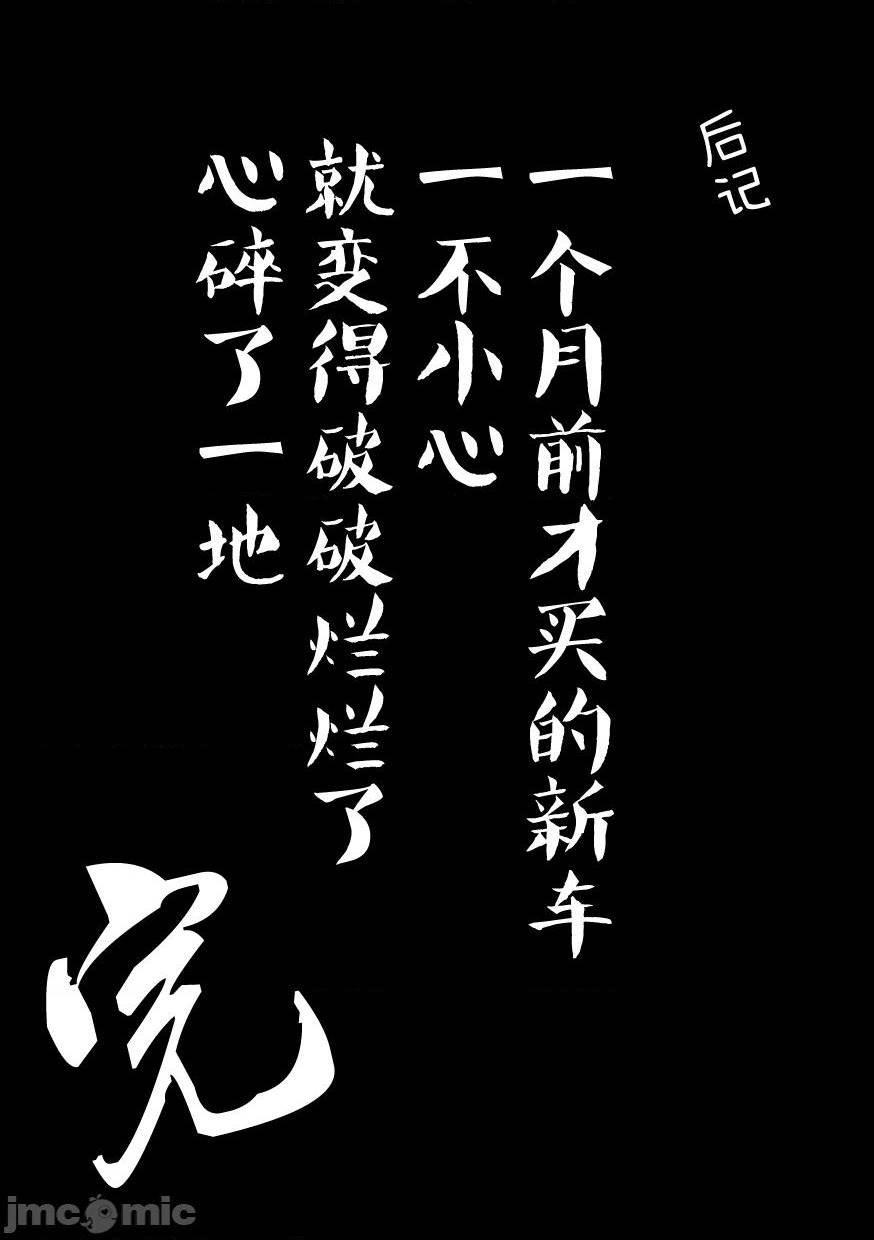 后记
一个月前才买的新车
一不小心
就变得破破烂烂了
心碎了一地
完
jmcomic